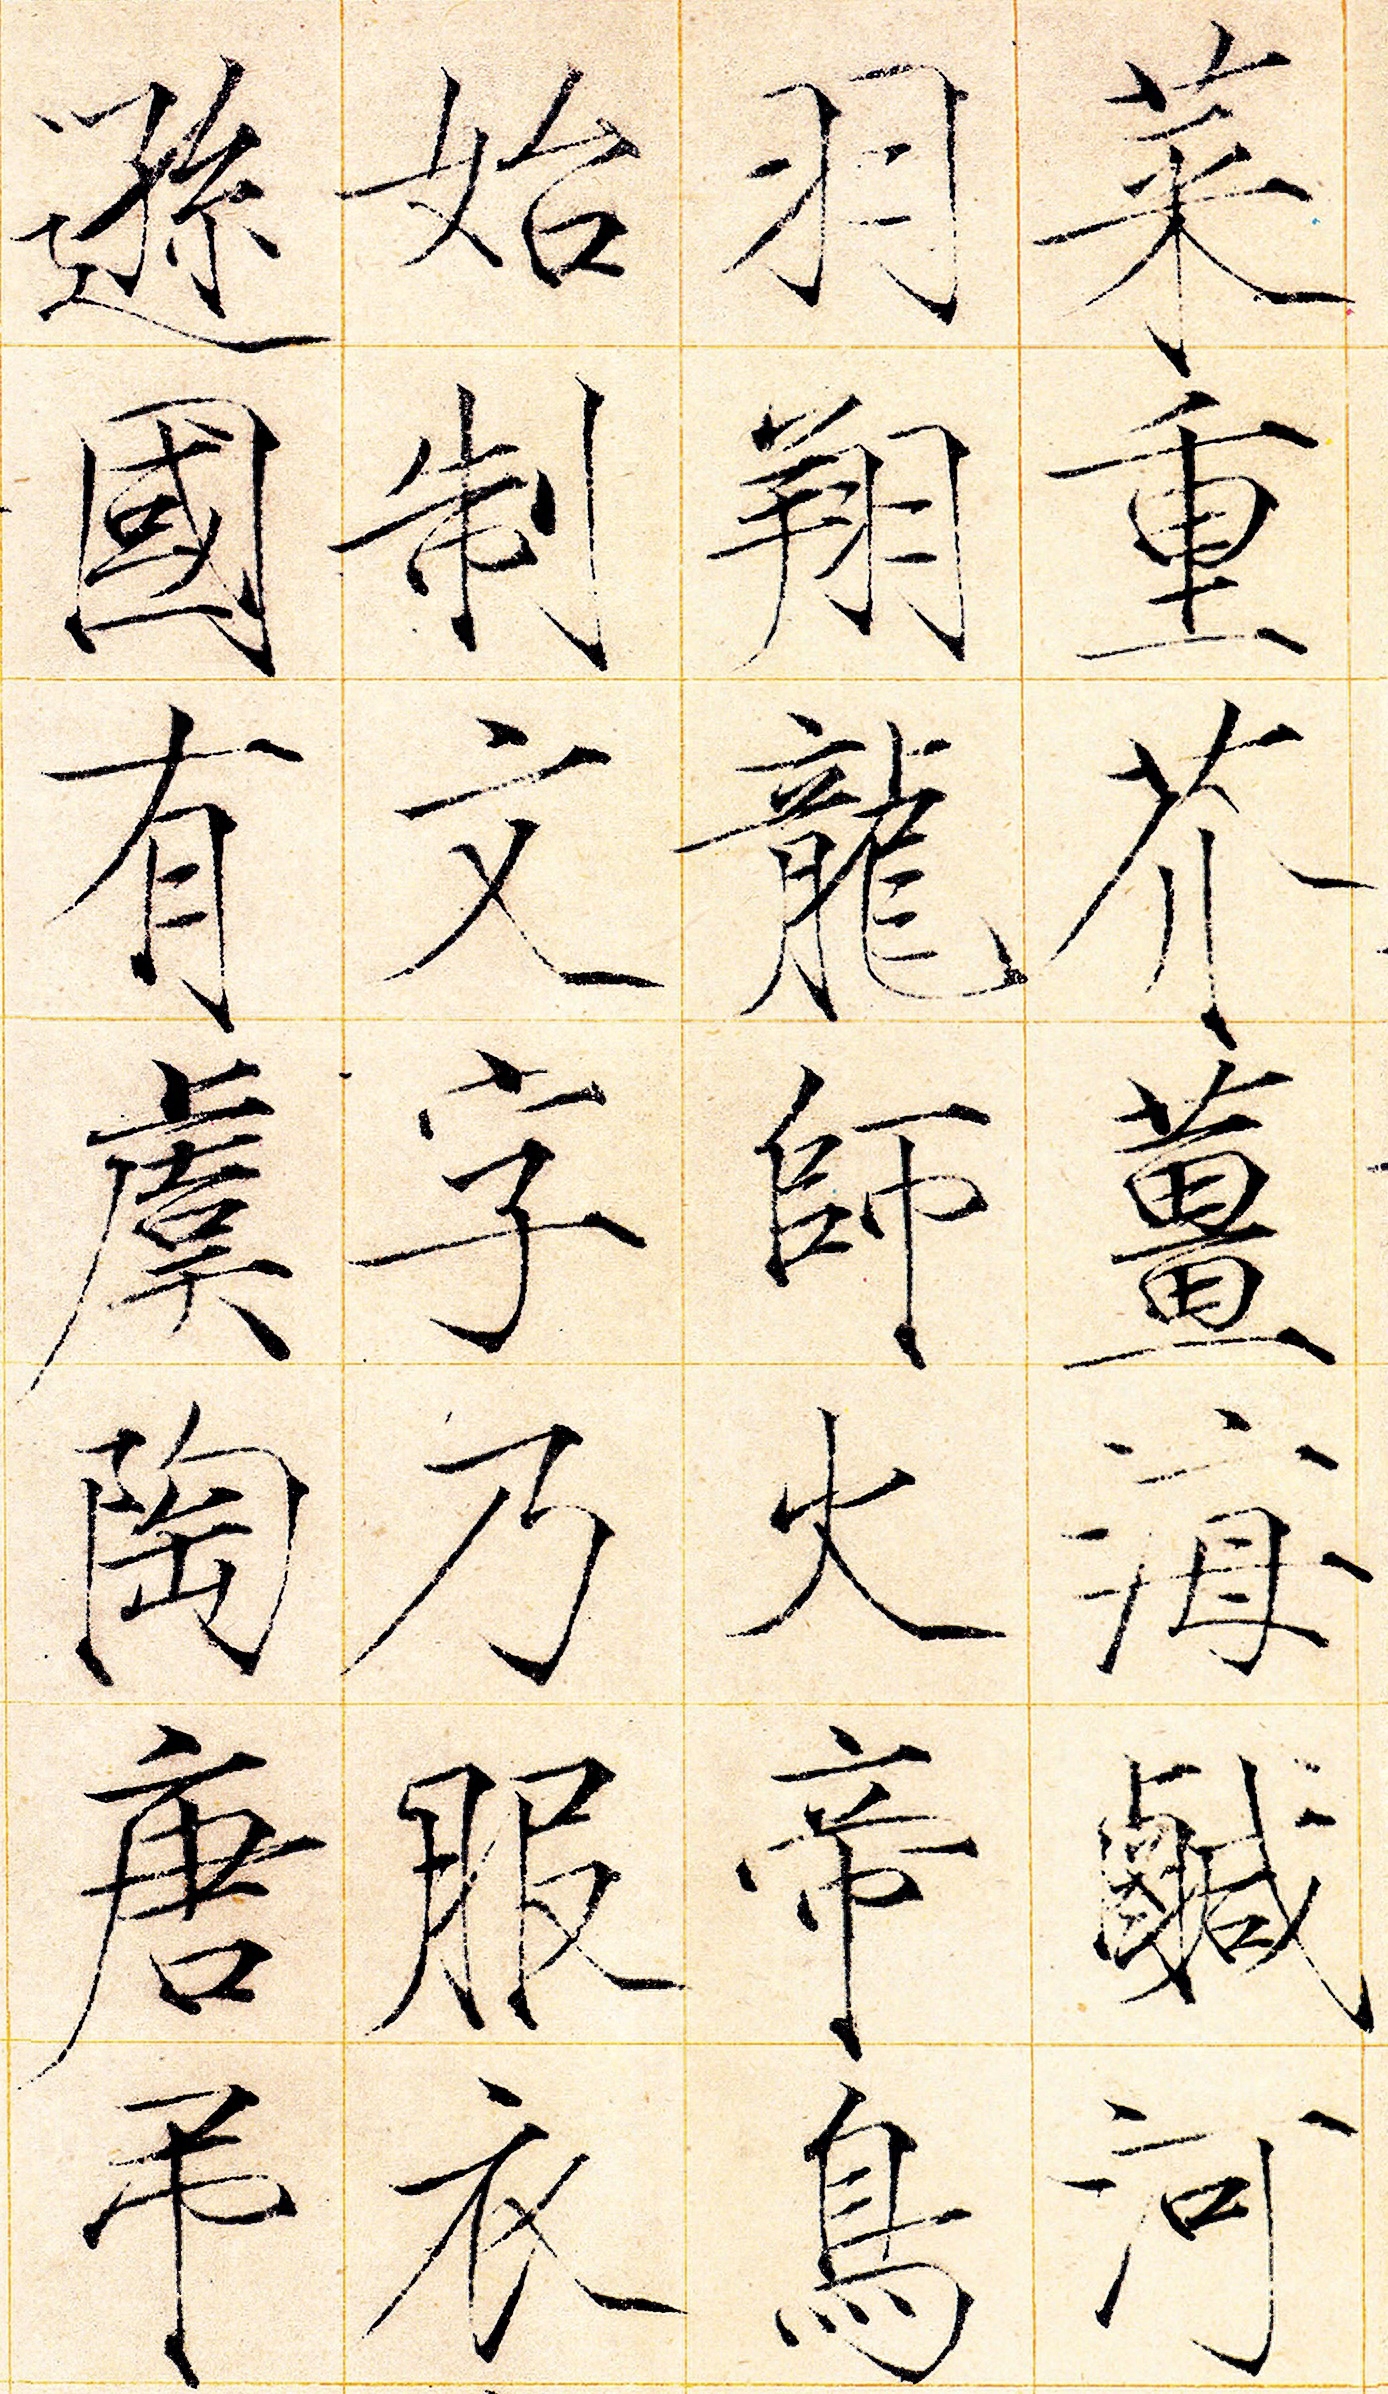 菜重芥薑海鹹河
羽翔龍師火帝鳥
始制文字乃服衣
遜國有虞陶唐弔